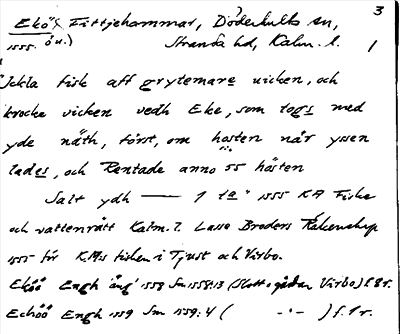 3
Ekö, Fittjehammar, Döderhults sn,
1555. ö n.) Stranda hd, Kalm. l. 1
Jckla fisk aff grytemare uicken, och
krocke vicken vedh Eke, som togs med
yde näth, först, om hosten når yssen
lades, och Rentade anno 55 hösten
Salt ydh — 1 ta" 1555 KA Fiske
och vattenrätt Kalm. l. Lasse Broders Räkenskap
1555 för K.M:s fisken i Tjust och Virbo.
Eköö Engh äng 1558 Sm 1558:13 (Slottsgården Virbo) f. 8 r.
Echöö Engh 1559 Sm 1559:4 ( -"- ) f. 1 r.